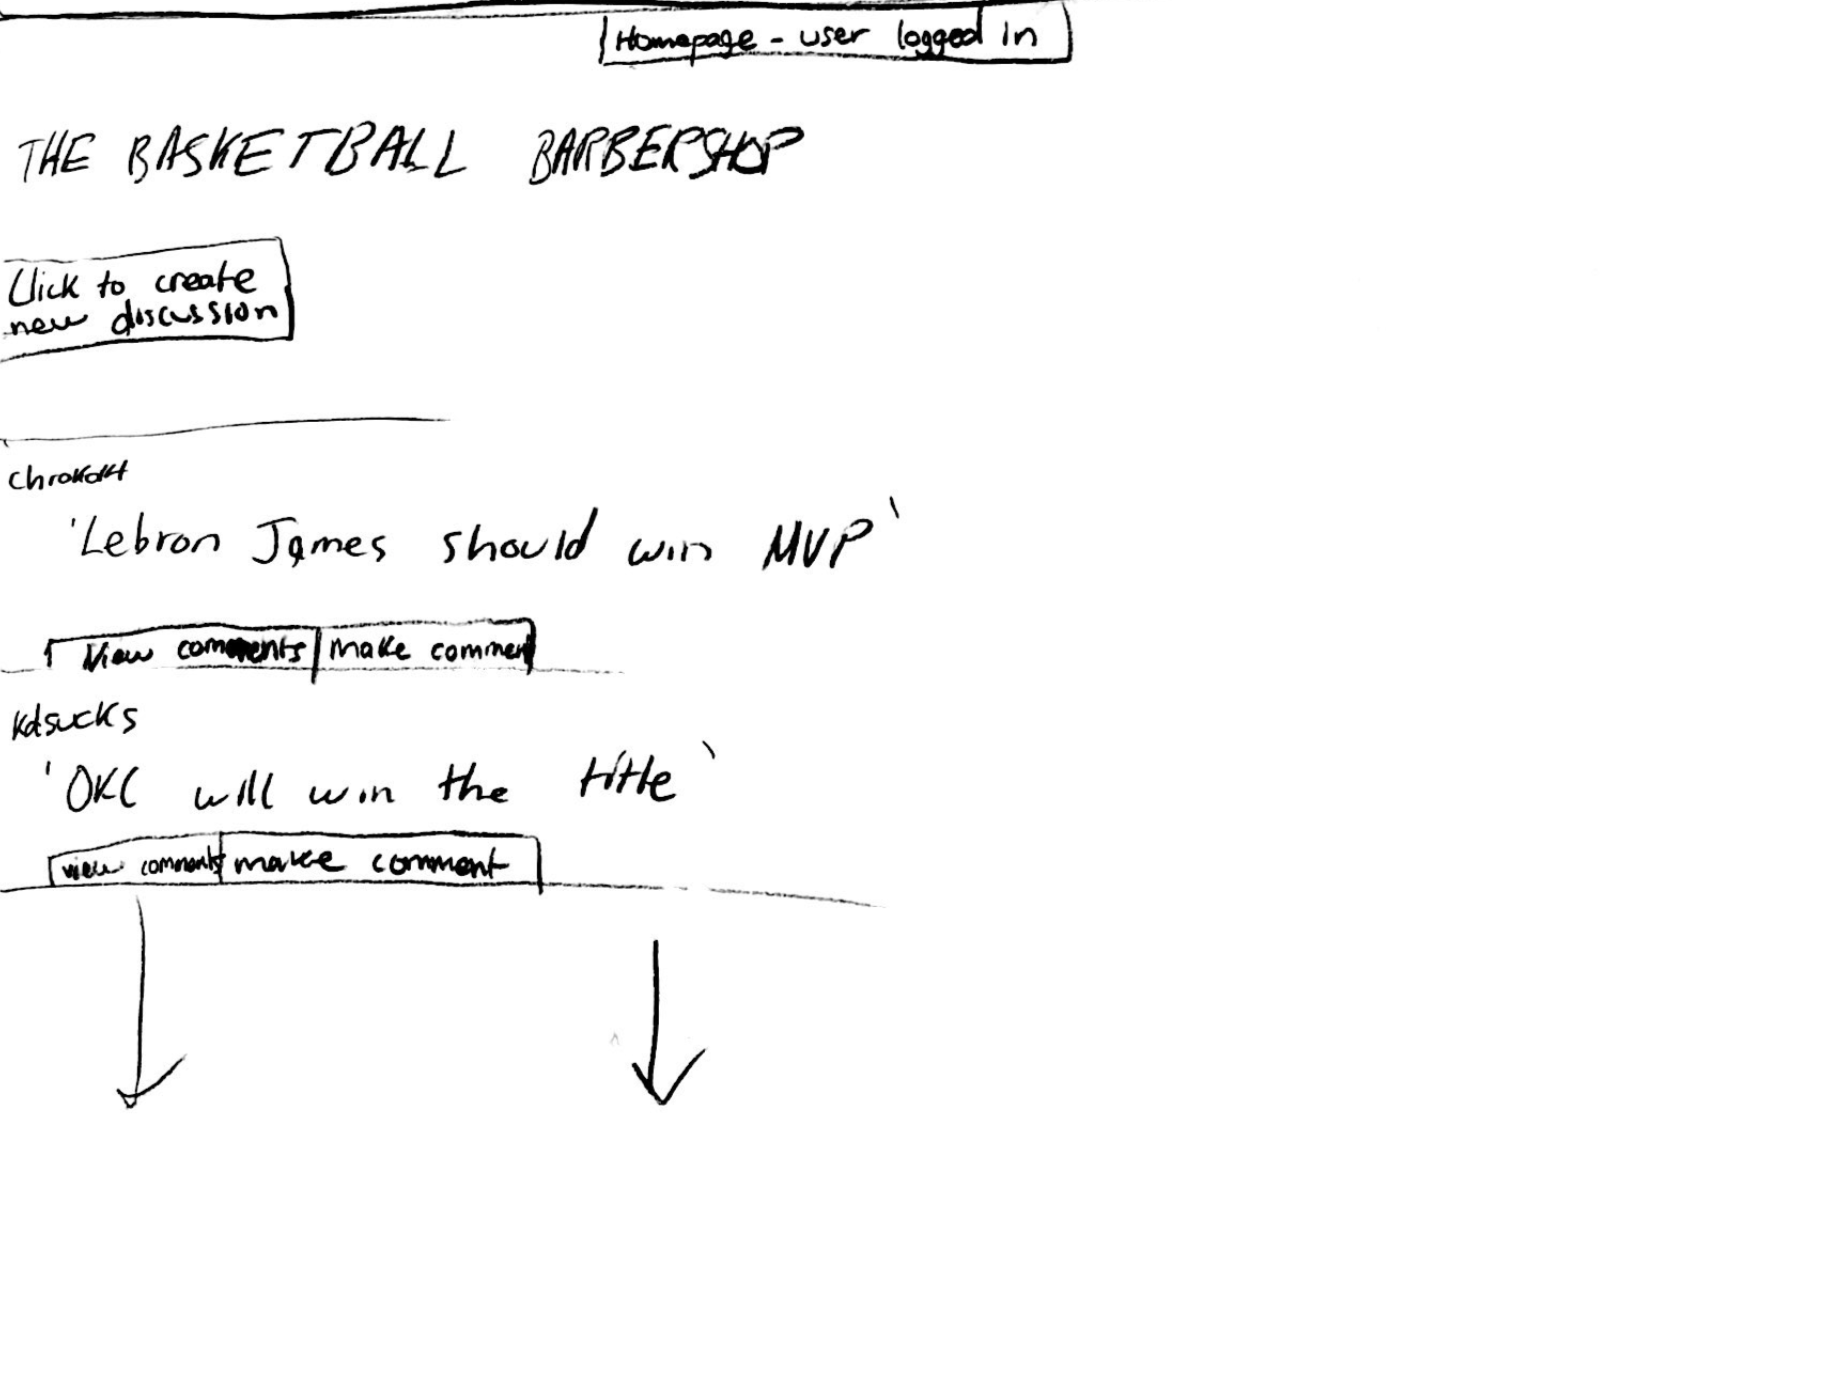 Homepage - user logged in
THE BASKETBALL BARBERSHOP
Click to create
new discussion
'Lebron James should win MVP'
View comments make commen
kdsucks
'OKC will win the title'
view comments make comment